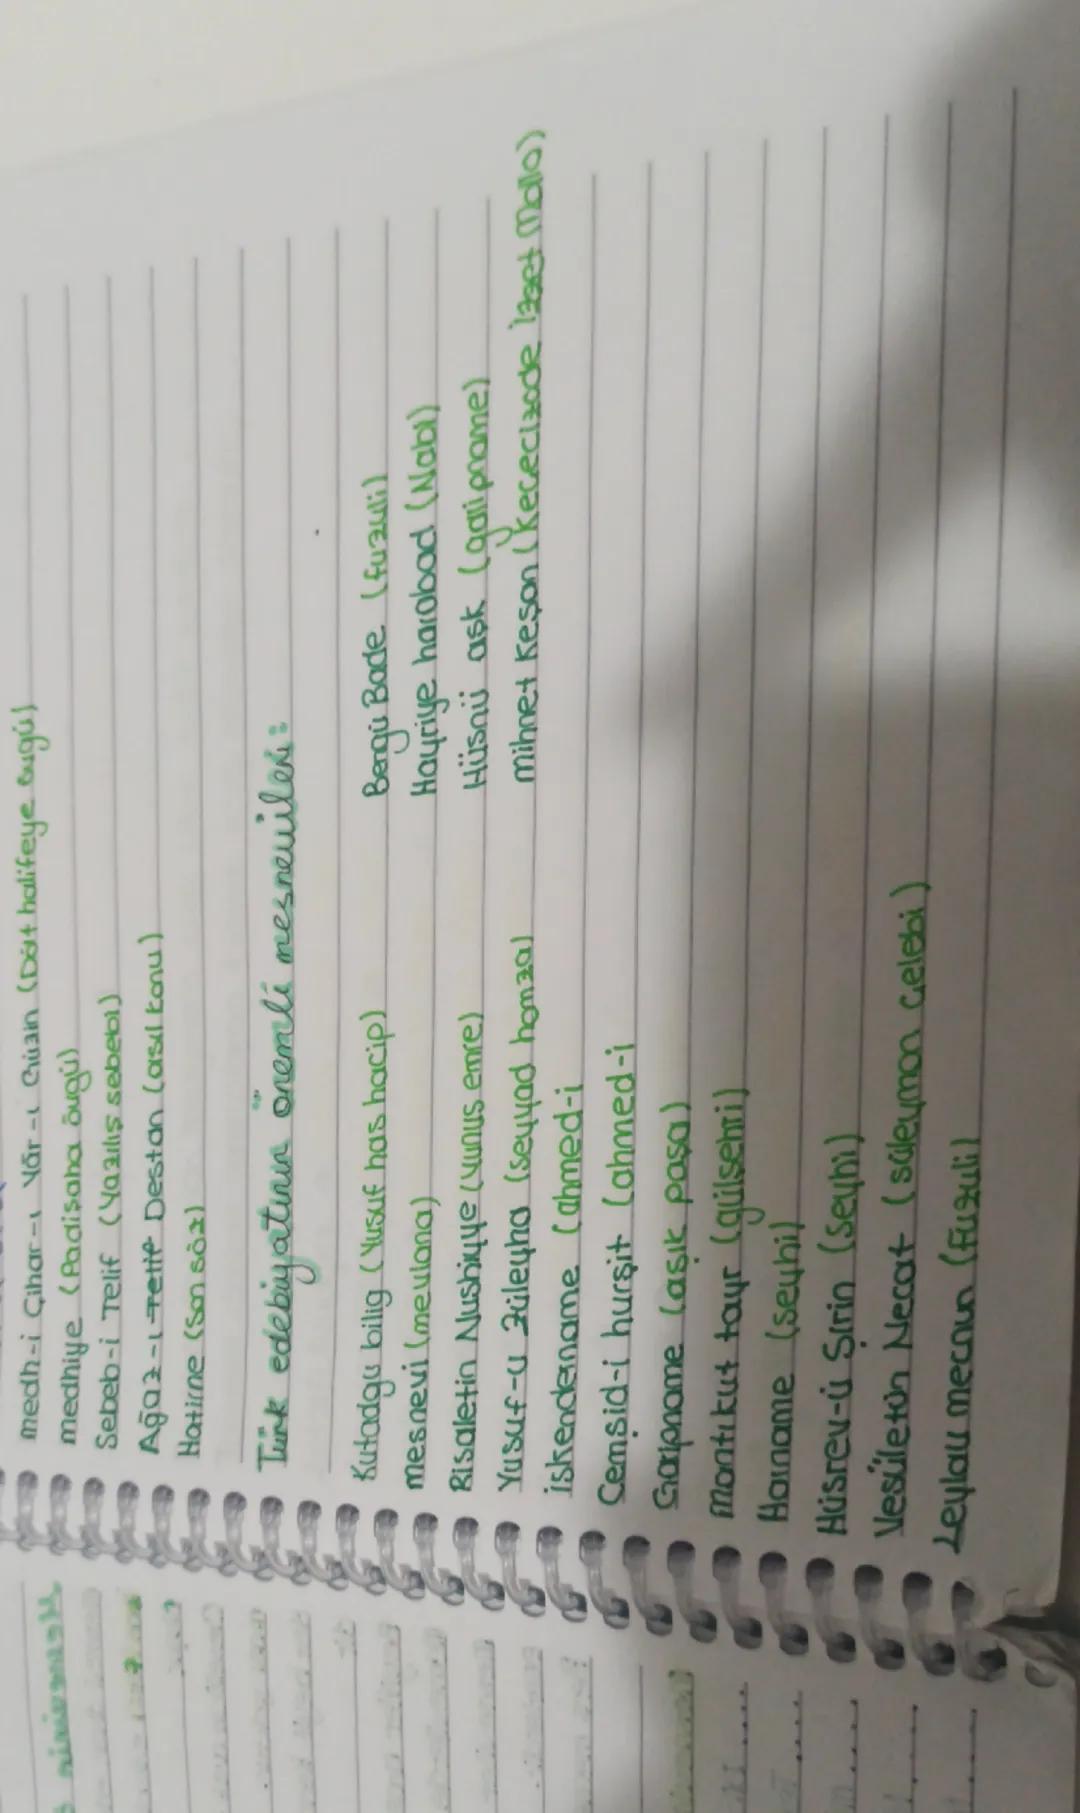 medh-i Çihar-ı Yâr-ı Güzin (Dört halifeye övgü)
medhiye (Padişaha övgü)
Sebeb-i Telif (Yazılış sebebi)
Ağaz-ı Destan (asıl konu)
Hatime (Son söz)
Türk edebiyatının önemli mesnevileri:
Kutadgu bilig (Yusuf has hacip)
mesnevi (mevlana)
Risaletin Nushiyye (Yunus emre)
Yusuf-u Züleyha (seyyad hamza)
iskendername (ahmed-i
Cemşid-i hurşit (ahmed-i
Garipname (aşık paşa)
Mantıkut tayr (gülşehri)
Harname (şeyhi)
Hüsrev-ü Şirin (Şeyhi)
Vesületün Necat (süleyman çelebi)
Leylau mecnun (Fuzuli)
Bengü Bade (fuzuli)
Hayriye harabad (Nabi)
Hüsnü aşk (galipname)
mihnet Keşan (Keçecizade İzzet Molla)